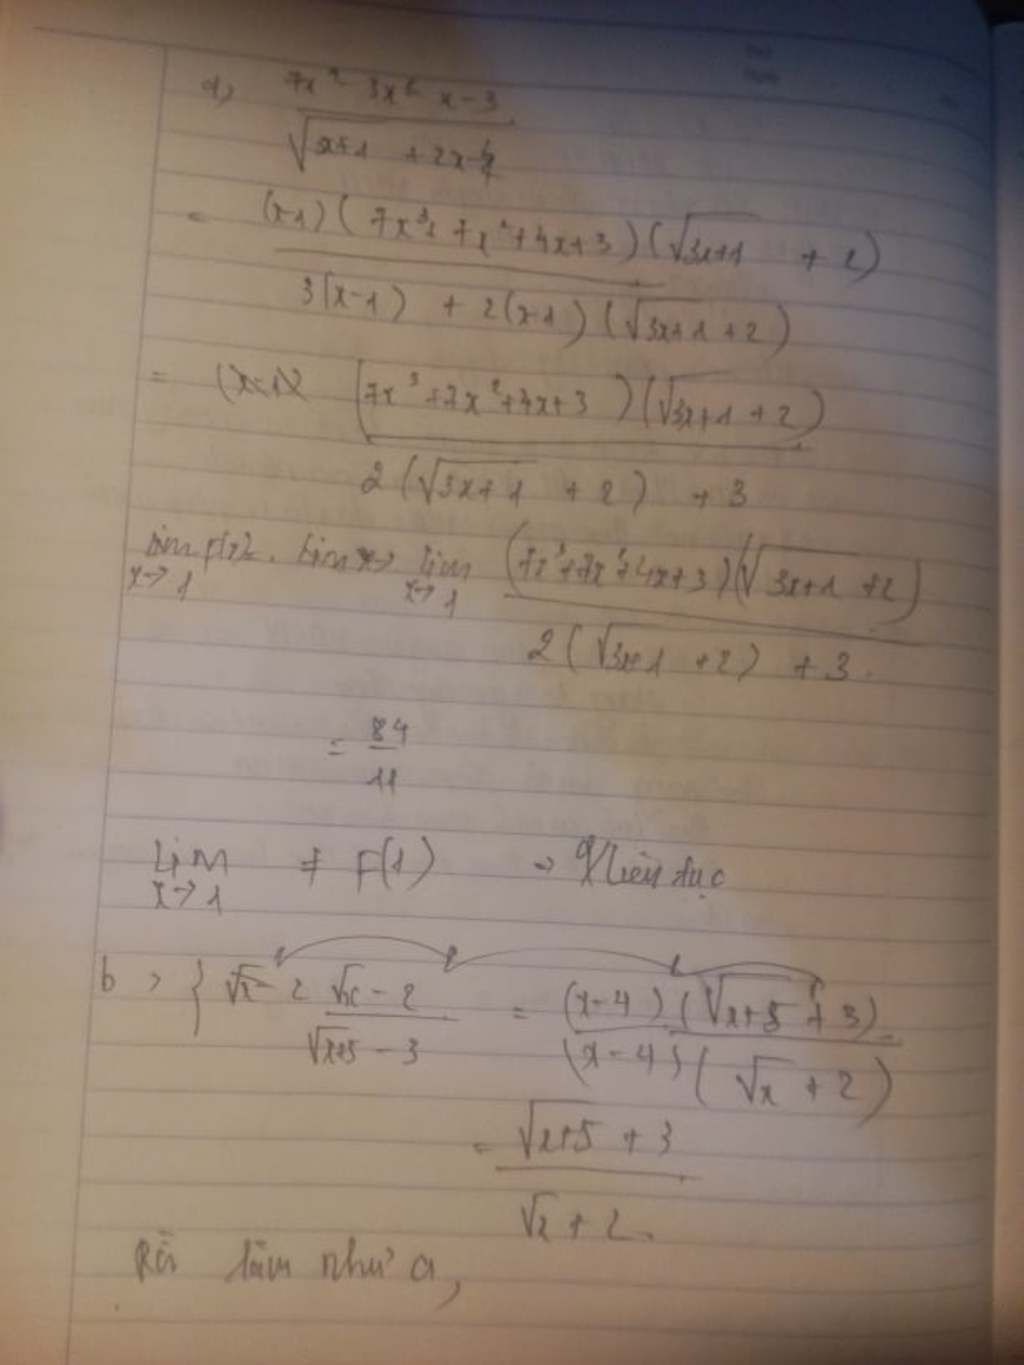 a, 7x⁴ - 3x² - x - 3
√3x+1 + 2x-4
= (x-1)(7x³+7x²+4x+3)(√3x+1 + 2)
3(x-1) + 2(x-1)(√3x+1+2)
= (7x³+7x²+4x+3)(√3x+1+2)
2(√3x+1 + 2) + 3
lim F(x) = lim (7x³+7x²+4x+3)(√3x+1+2)
x→1 x→1 2(√3x+1 +2) + 3.
= 84
11
Lim ≠ F(1) → liên tục
x→1
b, { √x - 2 √x - 2 = (x-4)(√x+5+3)
√x+5 - 3 (x-4)(√x + 2)
= √x+5 + 3
√x + 2.
Rồi làm như a,